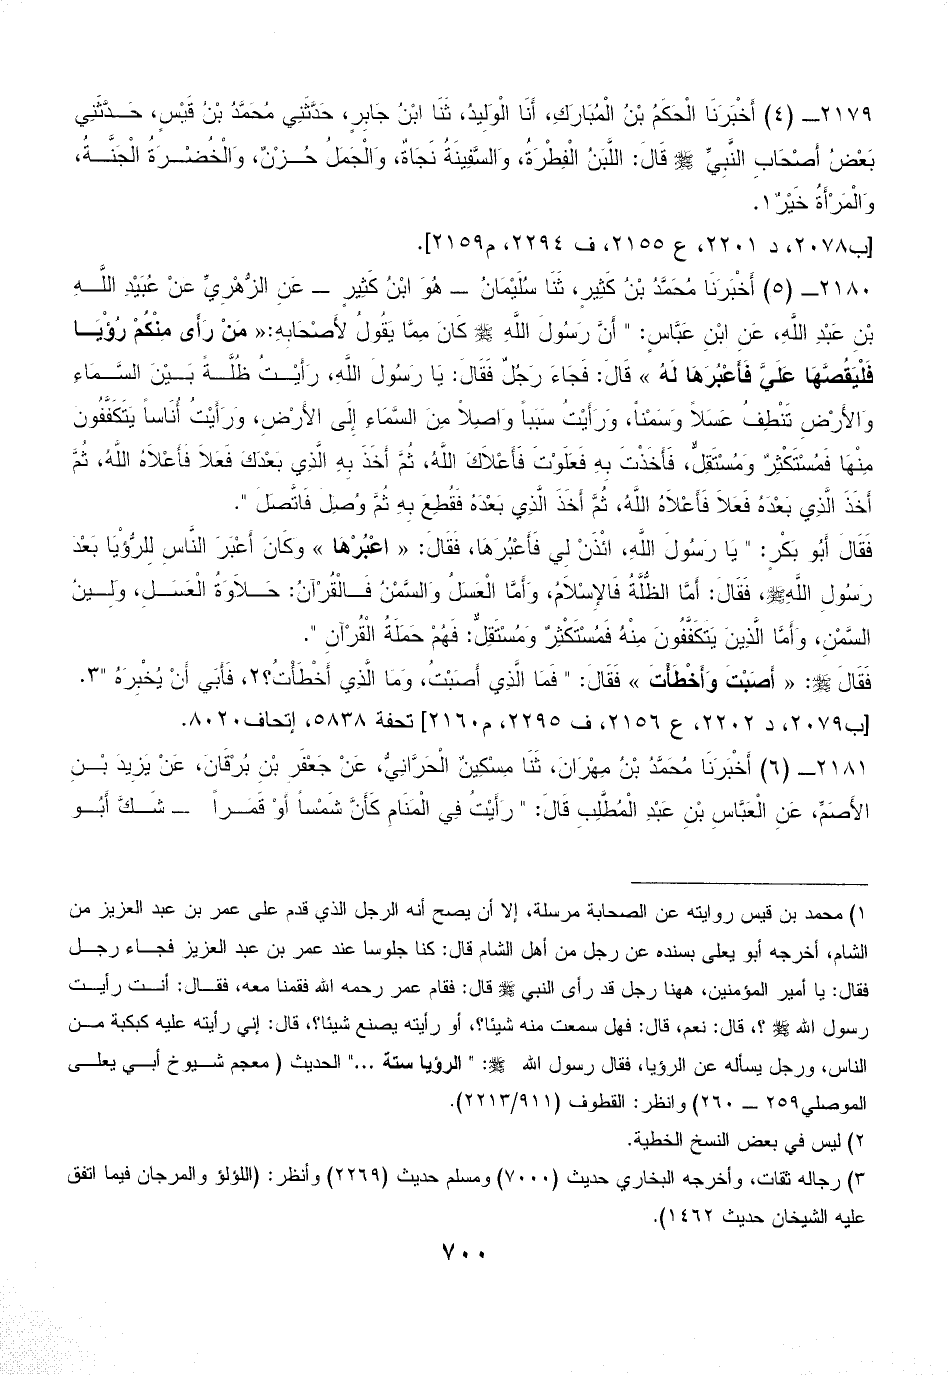 ٢١٧٩ــ (٤) أَخْبَرَنَا الْحَكَمُ بْنُ الْمُبَارَكِ، أَنَا الْوَلِيدُ، ثَنَا ابْنُ جَابِرٍ، حَدَّثَنِي مُحَمَّدُ بْنُ قَيْسٍ، حَـــدَّثَنِي
بَعْضُ أَصْحَابِ النَّبِيِّ ﷺ قَالَ: اللَّبَنُ الْفِطْرَةُ، وَالسَّفِينَةُ نَجَاةٌ، وَالْجَمَلُ حُـزْنٌ، وَالْخُضْـرَةُ الْجَنَّـــةُ،
وَالْمَرْأَةُ خَيْرٌ١.
[ب٢٠٧٨، د ٢٢٠١، ع ٢١٥٥، ف ٢٢٩٤، م٢١٥٩].
٢١٨٠ــ (٥) أَخْبَرَنَا مُحَمَّدُ بْنُ كَثِيرٍ، ثَنَا سُلَيْمَانُ ــ هُوَ ابْنُ كَثِيرٍ ــ عَنِ الزُّهْرِيِّ عَنْ عُبَيْدِ اللَّــهِ
بْنِ عَبْدِ اللَّهِ، عَنِ ابْنِ عَبَّاسٍ: " أَنَّ رَسُولَ اللَّهِ ﷺ كَانَ مِمَّا يَقُولُ لأَصْحَابِهِ:« مَنْ رَأَى مِنْكُمْ رُؤْيَــا
فَلْيَقُصَّهَا عَلَيَّ فَأَعْبُرَهَا لَهُ » قَالَ: فَجَاءَ رَجُلٌ فَقَالَ: يَا رَسُولَ اللَّهِ، رَأَيْــتُ ظُلَّــةً بَــيْنَ السَّــمَاءِ
وَالأَرْضِ تَنْطِفُ عَسَلاً وَسَمْناً، وَرَأَيْتُ سَبَباً وَاصِلاً مِنَ السَّمَاءِ إِلَى الأَرْضِ، وَرَأَيْتُ أُنَاساً يَتَكَفَّفُونَ
مِنْهَا فَمُسْتَكْثِرٌ وَمُسْتَقِلٌّ، فَأَخَذْتَ بِهِ فَعَلَوْتَ فَأَعْلاَكَ اللَّهُ، ثُمَّ أَخَذَ بِهِ الَّذِي بَعْدَكَ فَعَلاَ فَأَعْلاَهُ اللَّهُ، ثُمَّ
أَخَذَ الَّذِي بَعْدَهُ فَعَلاَ فَأَعْلاَهُ اللَّهُ، ثُمَّ أَخَذَ الَّذِي بَعْدَهُ فَقُطِعَ بِهِ ثُمَّ وُصِلَ فَاتَّصَلَ ".
فَقَالَ أَبُو بَكْرٍ: " يَا رَسُولَ اللَّهِ، ائْذَنْ لِي فَأَعْبُرَهَا، فَقَالَ: « اعْبُرْهَا » وَكَانَ أَعْبَرَ النَّاسِ لِلرُّؤْيَا بَعْدَ
رَسُولِ اللَّهِ ﷺ، فَقَالَ: أَمَّا الظُّلَّةُ فَالإِسْلاَمُ، وَأَمَّا الْعَسَلُ وَالسَّمْنُ فَـالْقُرْآنُ: حَــلاَوَةُ الْعَسَــلِ، وَلِــينُ
السَّمْنِ، وَأَمَّا الَّذِينَ يَتَكَفَّفُونَ مِنْهُ فَمُسْتَكْثِرٌ وَمُسْتَقِلٌّ: فَهُمْ حَمَلَةُ الْقُرْآنِ ".
فَقَالَ ﷺ: « أَصَبْتَ وَأَخْطَأْتَ » فَقَالَ: " فَمَا الَّذِي أَصَبْتُ، وَمَا الَّذِي أَخْطَأْتُ؟٢، فَأَبَي أَنْ يُخْبِرَهُ "٣.
[ب٢٠٧٩، د ٢٢٠٢، ع ٢١٥٦، ف ٢٢٩٥، م٢١٦٠] تحفة ٥٨٣٨، إتحاف٨٠٢٠.
٢١٨١ــ (٦) أَخْبَرَنَا مُحَمَّدُ بْنُ مِهْرَانَ، ثَنَا مِسْكِينٌ الْحَرَّانِيُّ، عَنْ جَعْفَرِ بْنِ بُرْقَانَ، عَنْ يَزِيدَ بْــنِ
الأَصَمِّ، عَنِ الْعَبَّاسِ بْنِ عَبْدِ الْمُطَّلِبِ قَالَ: " رَأَيْتُ فِي الْمَنَامِ كَأَنَّ شَمْساً أَوْ قَمَــراً ــ شَــكَّ أَبُــو
١) محمد بن قيس روايته عن الصحابة مرسلة، إلا أن يصح أنه الرجل الذي قدم على عمر بن عبد العزيز من
الشام، أخرجه أبو يعلى بسنده عن رجل من أهل الشام قال: كنا جلوسا عند عمر بن عبد العزيز فجـاء رجــل
فقال: يا أمير المؤمنين، ههنا رجل قد رأى النبي ﷺ قال: فقام عمر رحمه الله فقمنا معه، فقــال: أنــت رأيــت
رسول الله ﷺ ؟، قال: نعم، قال: فهل سمعت منه شيئا؟، أو رأيته يصنع شيئا؟، قال: إني رأيته عليه كبكبة مــن
الناس، ورجل يسأله عن الرؤيا، فقال رسول الله ﷺ: " الرؤيا ستة ..." الحديث ( معجم شــيوخ أبــي يعلــى
الموصلي٢٥٩ ــ ٢٦٠) وانظر: القطوف (٢٢١٣/٩١١).
٢) ليس في بعض النسخ الخطية.
٣) رجاله ثقات، وأخرجه البخاري حديث (٧٠٠٠) ومسلم حديث (٢٢٦٩) وأنظر: (اللؤلؤ والمرجان فيما اتفق
عليه الشيخان حديث ١٤٦٢).
٧٠٠